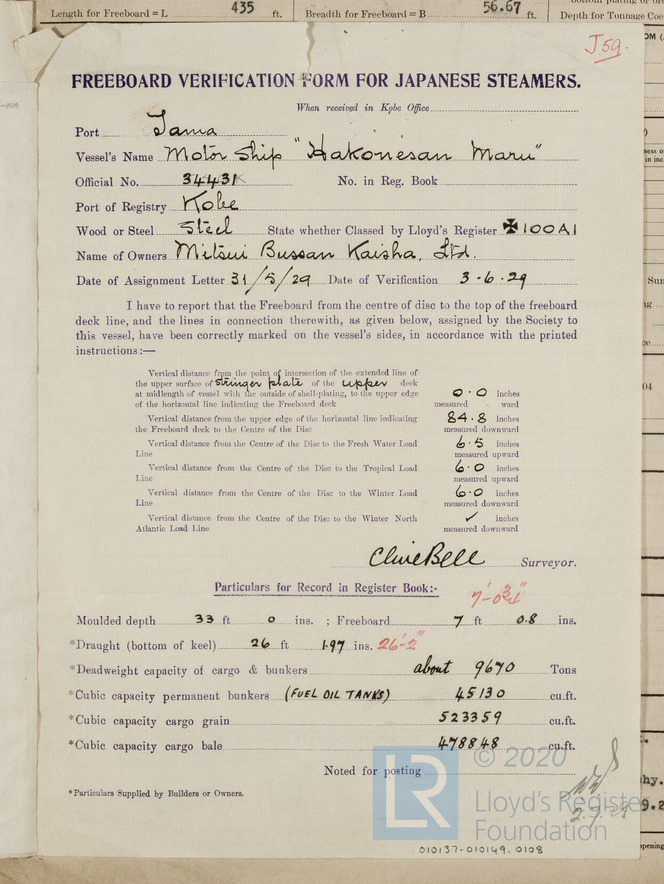 Length for Freeboard = L 435 ft. Breadth for Freeboard = B 56.67 ft. Depth for Tonnage Coe
J.59.
FREEBOARD VERIFICATION FORM FOR JAPANESE STEAMERS.
When received in Kobe Office
Port Tama
Vessel's Name Motor Ship "Hakonesan Maru"
Official No. 34431 No. in Reg. Book
Port of Registry Kobe
Wood or Steel Steel State whether Classed by Lloyd's Register ✠100A1
Name of Owners Mitsui Bussan Kaisha, Ltd.
Date of Assignment Letter 31/5/29 Date of Verification 3-6-29
I have to report that the Freeboard from the centre of disc to the top of the freeboard
deck line, and the lines in connection therewith, as given below, assigned by the Society to
this vessel, have been correctly marked on the vessel's sides, in accordance with the printed
instructions:—
Vertical distance from the point of intersection of the extended line of
the upper surface of stringer plate of the upper deck
at midlength of vessel with the outside of shell-plating, to the upper edge 0.0 inches
of the horizontal line indicating the Freeboard deck measured ward
Vertical distance from the upper edge of the horizontal line indicating 84.8 inches
the Freeboard deck to the Centre of the Disc measured downward
Vertical distance from the Centre of the Disc to the Fresh Water Load 6.5 inches
Line measured upward
Vertical distance from the Centre of the Disc to the Tropical Load 6.0 inches
Line measured upward
Vertical distance from the Centre of the Disc to the Winter Load 6.0 inches
Line measured downward
Vertical distance from the Centre of the Disc to the Winter North ✓ inches
Atlantic Load Line measured downward
Clive Bell Surveyor.
Particulars for Record in Register Book:-
7'-0¾"
Moulded depth 33 ft 0 ins. ; Freeboard 7 ft 0.8 ins.
*Draught (bottom of keel) 26 ft 1.97 ins. 26'-2"
*Deadweight capacity of cargo & bunkers about 9670 Tons
*Cubic capacity permanent bunkers (FUEL OIL TANKS) 45130 cu.ft.
*Cubic capacity cargo grain 523359 cu.ft.
*Cubic capacity cargo bale 478848 cu.ft.
Noted for posting
*Particulars Supplied by Builders or Owners.
LR © 2020
Lloyd's Register
Foundation
010137-010149-0108